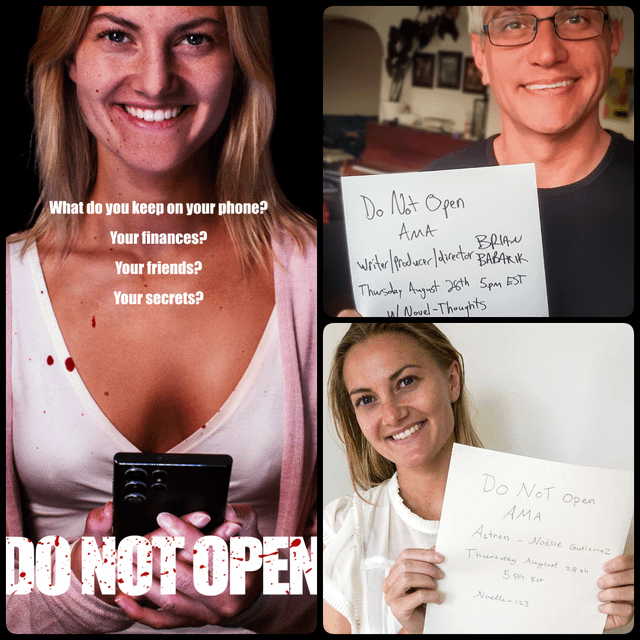 What do you keep on your phone?
Your finances?
Your friends?
Your secrets?
DO NOT OPEN
Do Not Open
AMA
Writer/Producer/director BRIAN BABARIK
Thursday August 28th 5pm EST
W/ Novel-Thoughts
Do Not Open
AMA
Actress - Noëlle Gutierrez
Thursday August 28th
5 PM EST
Noelle-123